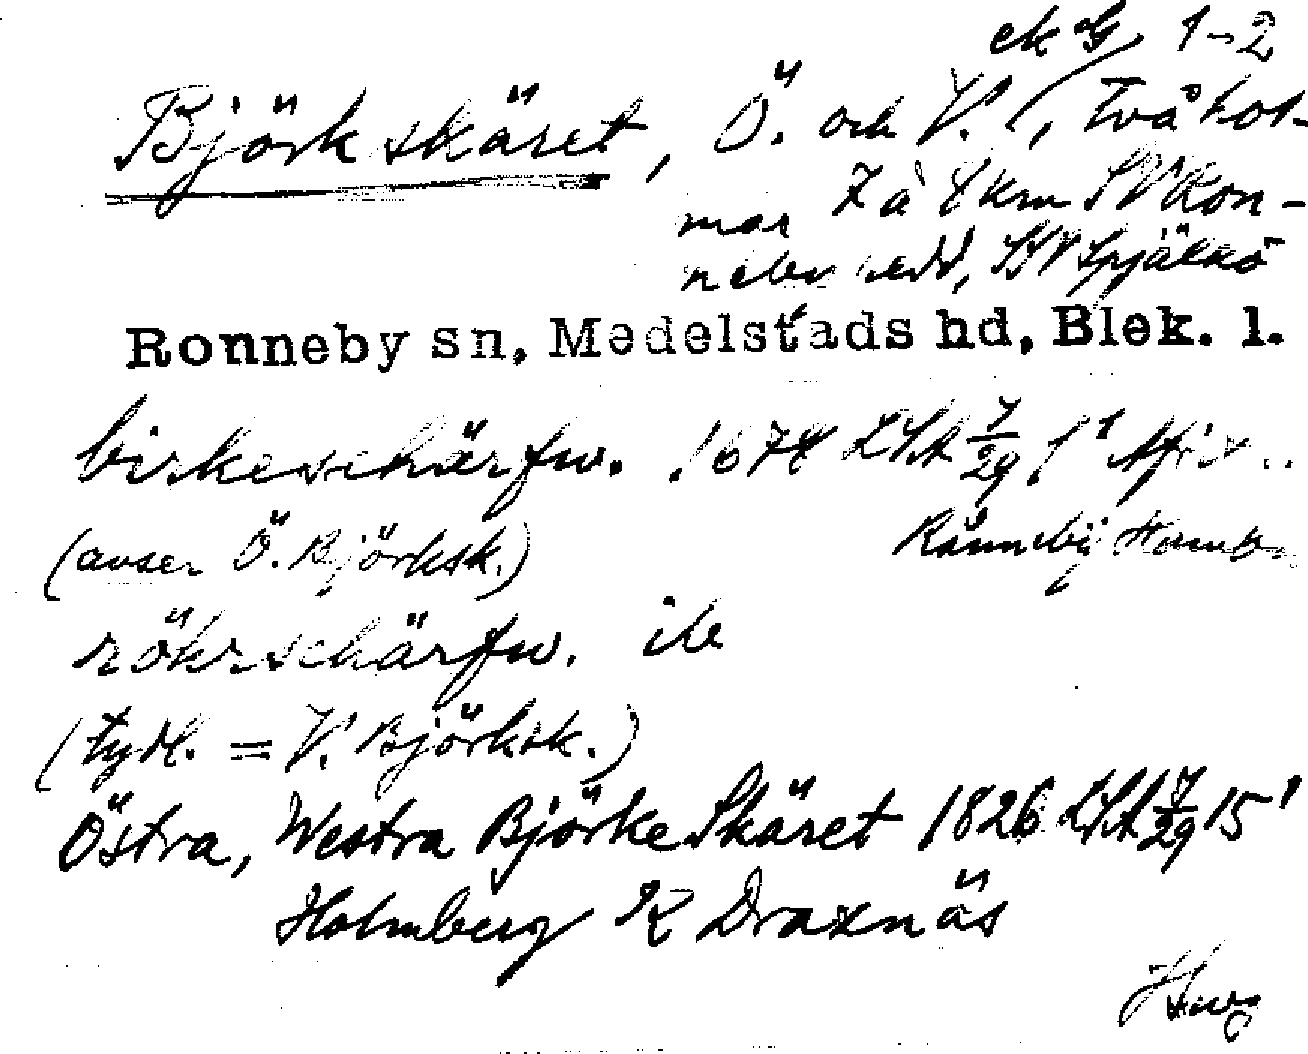 ek G 1-2
Björkskäret, Ö. och V., två hol-
mar 7 à 8 km SV Ron-
neby redd, SV Spjälkö
Ronneby sn, Medelstads hd, Blek. l.
birkeschärfw. 1678 LSA 7/29 1¹
(avser Ö. Björksk.) Rönnebÿ Hambn
röhrschärfw. ib
(tydl. = V. Björksk.)
Östra, Westra Björke Skäret 1826 LSA 7/29 15¹
Holmberg K Draxnäs